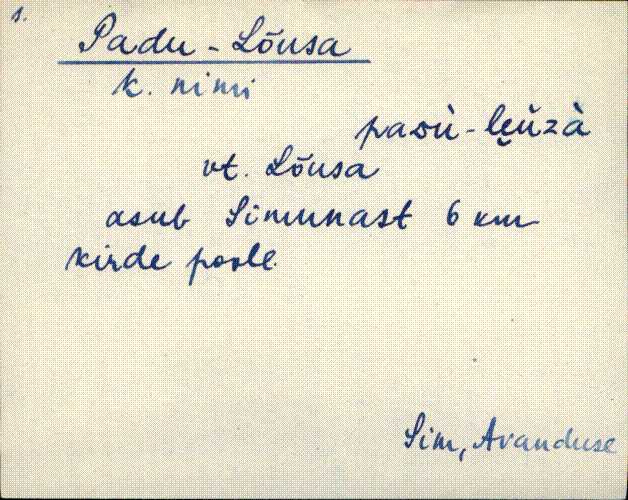 1.
Padu-Lõusa
k. nimi
paᴅù-le̮ǔzà
vt. Lõusa
asub Simunast 6 km
kirde poole.
Sim, Avanduse